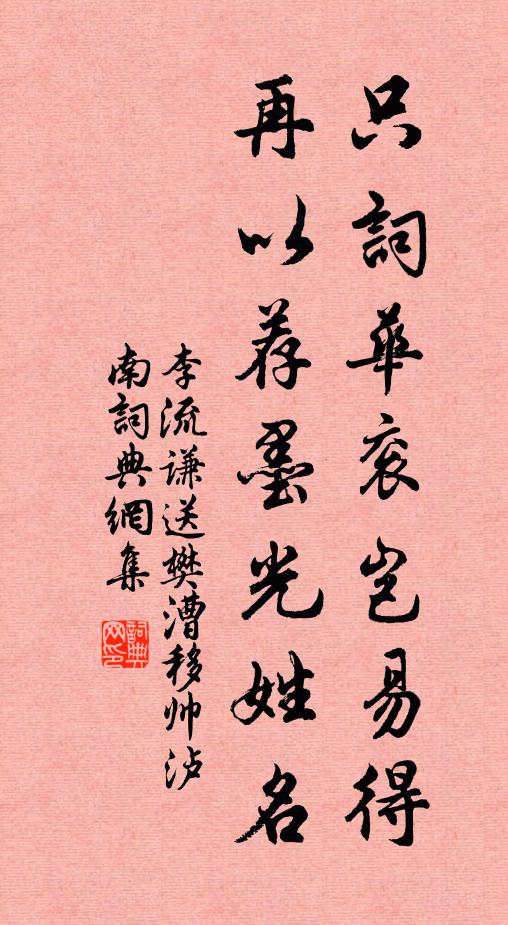 只詞華衮岂易得
再以荐墨光姓名
李流谦送樊漕移帅泸
南詞典網集
詞典网印